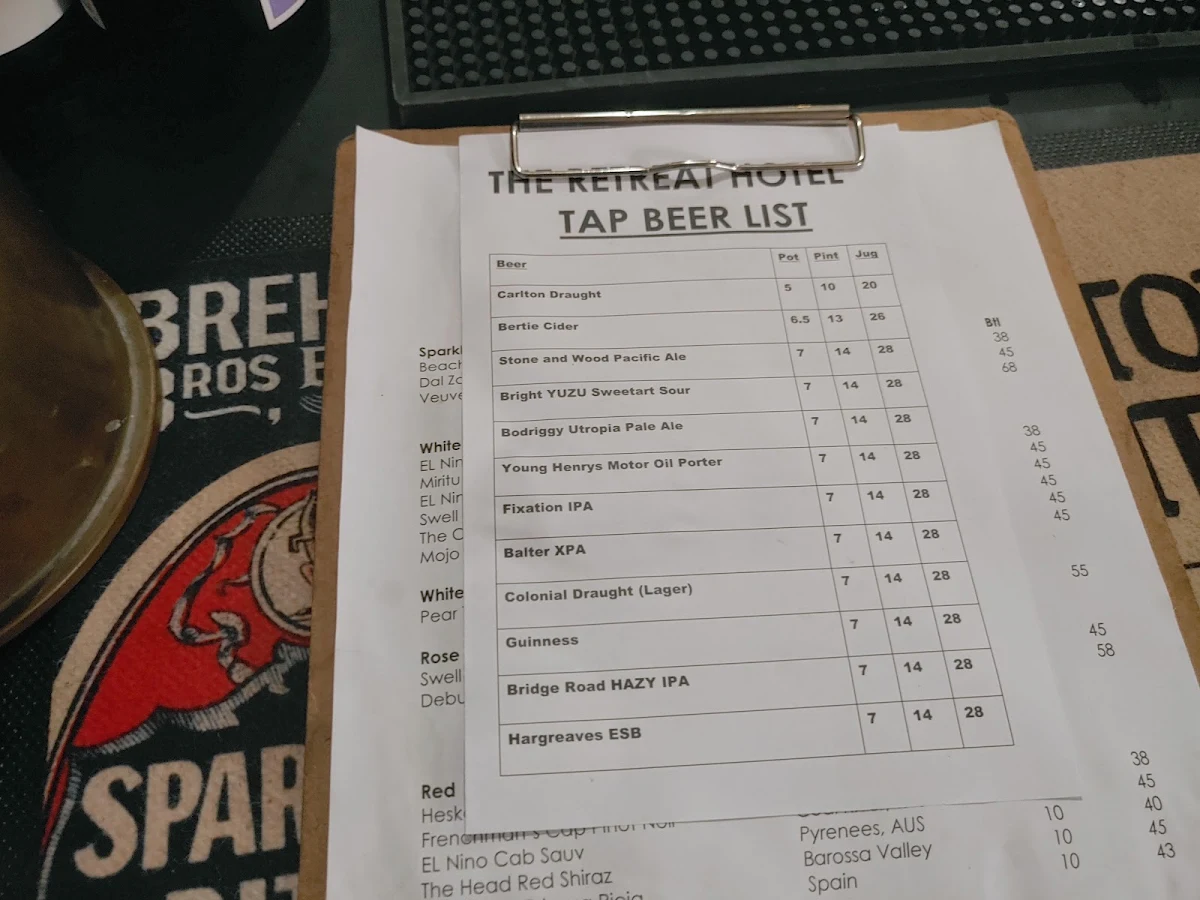 THE RETREAT HOTEL
TAP BEER LIST
Beer Pot Pint Jug
Carlton Draught 5 10 20
Bertie Cider 6.5 13 26
Stone and Wood Pacific Ale 7 14 28
Bright YUZU Sweetart Sour 7 14 28
Bodriggy Utropia Pale Ale 7 14 28
Young Henrys Motor Oil Porter 7 14 28
Fixation IPA 7 14 28
Balter XPA 7 14 28
Colonial Draught (Lager) 7 14 28
Guinness 7 14 28
Bridge Road HAZY IPA 7 14 28
Hargreaves ESB 7 14 28
Btl
Sparkl 38
Beach 45
Dal Zo 68
Veuve
White
EL Nin 38
Miritu 45
EL Nin 45
Swell 45
The C 45
Mojo 45
White
Pear 55
Rose
Swell 45
Debu 58
Red
Hesk 38
Frenchman's Cap Pinot Noir 45
EL Nino Cab Sauv Pyrenees, AUS 10 40
The Head Red Shiraz Barossa Valley 10 45
Rioja Spain 10 43
BREH
BROS
SPAR
TO